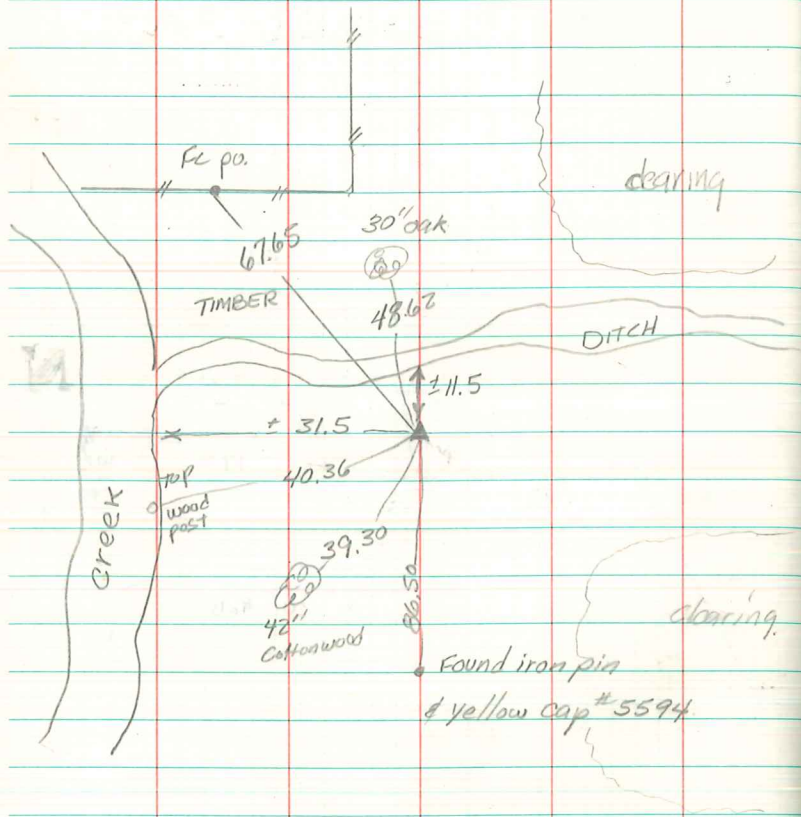 Fc po.
clearing
30" oak
67.65
TIMBER
48.62
DITCH
±11.5
± 31.5
40.36
TOP
wood
post
Creek
39.30
86.50
42"
Cottonwood
clearing
Found iron pin
& yellow cap #5594